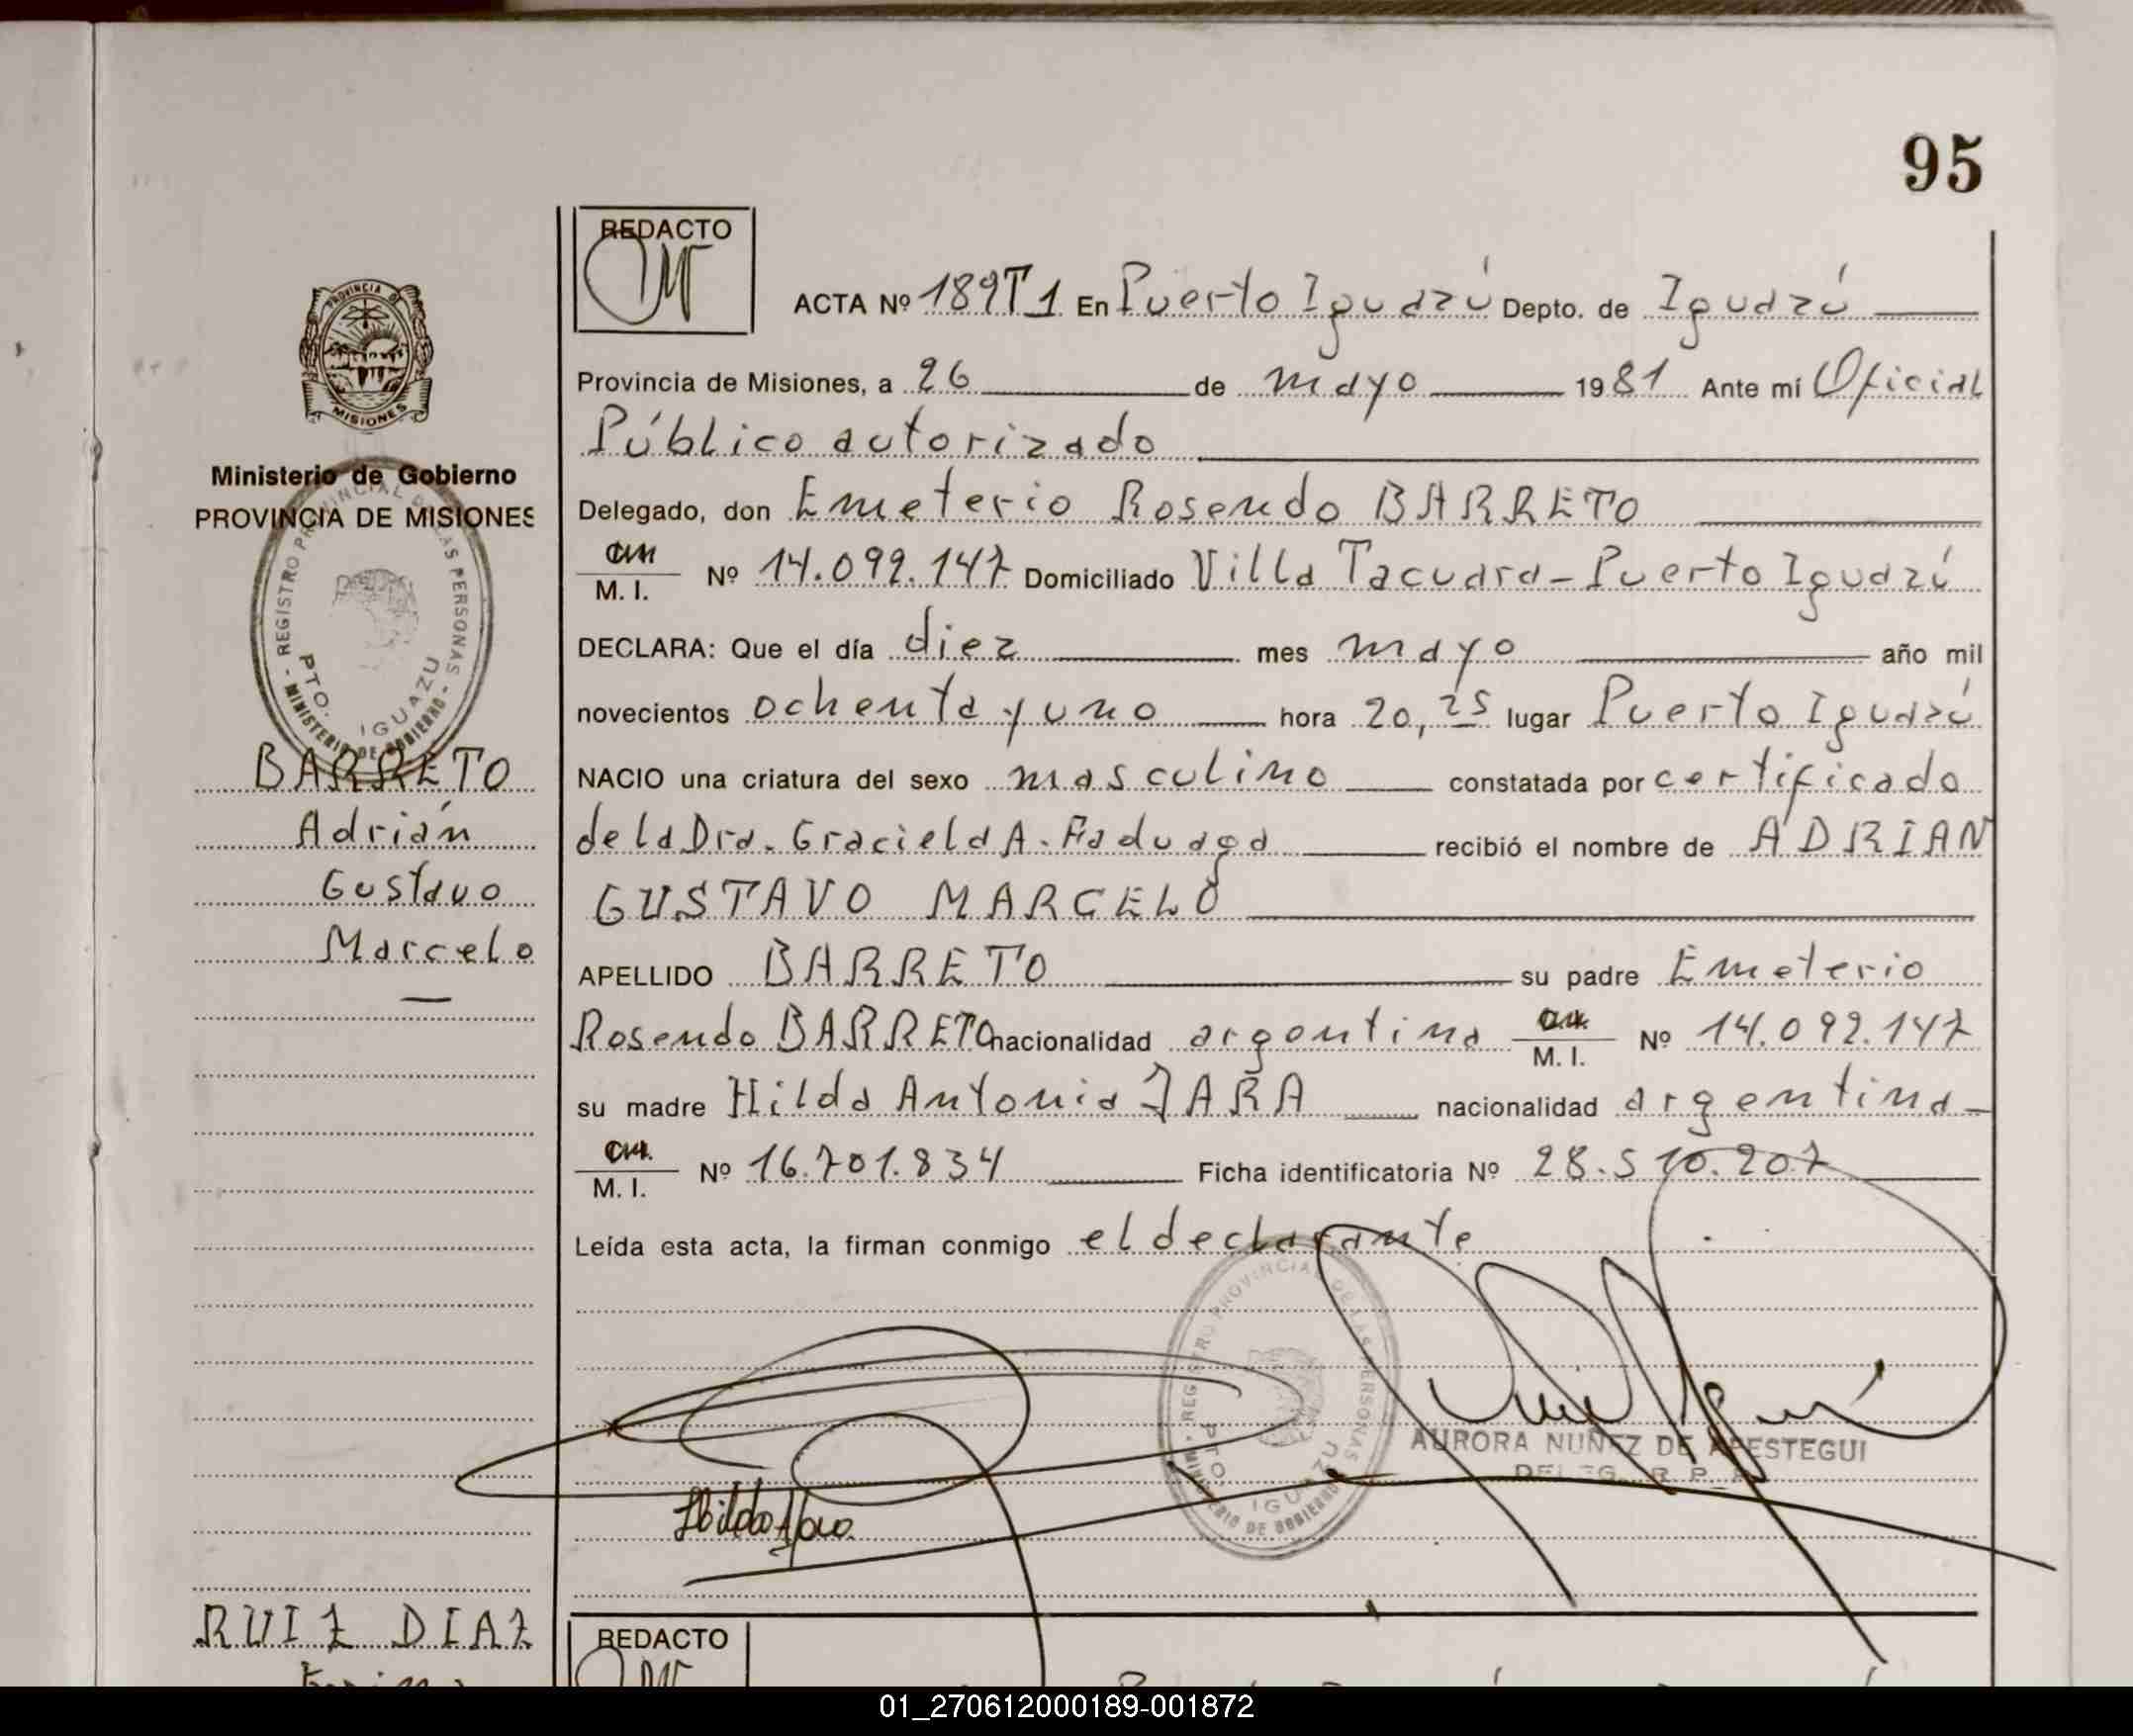 95
REDACTO
ACTA Nº 189T1 En Puerto Iguazú Depto. de Iguazú
Provincia de Misiones, a 26 de mayo 1981 Ante mí Oficial
Público autorizado
Delegado, don Emeterio Rosendo BARRETO
M. I. Nº 14.092.147 Domiciliado Villa Tacuara - Puerto Iguazú
DECLARA: Que el día diez mes mayo año mil
novecientos ochenta y uno hora 20,25 lugar Puerto Iguazú
NACIO una criatura del sexo masculino constatada por certificado
de la Dra. Graciela A. recibió el nombre de ADRIAN
GUSTAVO MARCELO
APELLIDO BARRETO su padre Emeterio
Rosendo BARRETO nacionalidad argentina M. I. Nº 14.092.147
su madre Hilda Antonia JARA nacionalidad argentina-
M. I. Nº 16.701.834 Ficha identificatoria Nº 28.510.207
Leída esta acta, la firman conmigo el declarante
PROVINCIA DE
MISIONES
Ministerio de Gobierno
PROVINCIA DE MISIONES
REGISTRO PROVINCIAL DE LAS PERSONAS
PTO. IGUAZU
MINISTERIO DE GOBIERNO
BARRETO
Adrián
Gustavo
Marcelo
REGISTRO PROVINCIAL DE LAS PERSONAS
PTO. IGUAZU
MINISTERIO DE GOBIERNO
AURORA NUÑEZ DE APESTEGUI
DELEG. R. P.
Hilda A Jara
RUIZ DIAZ
REDACTO
01_270612000189-001872